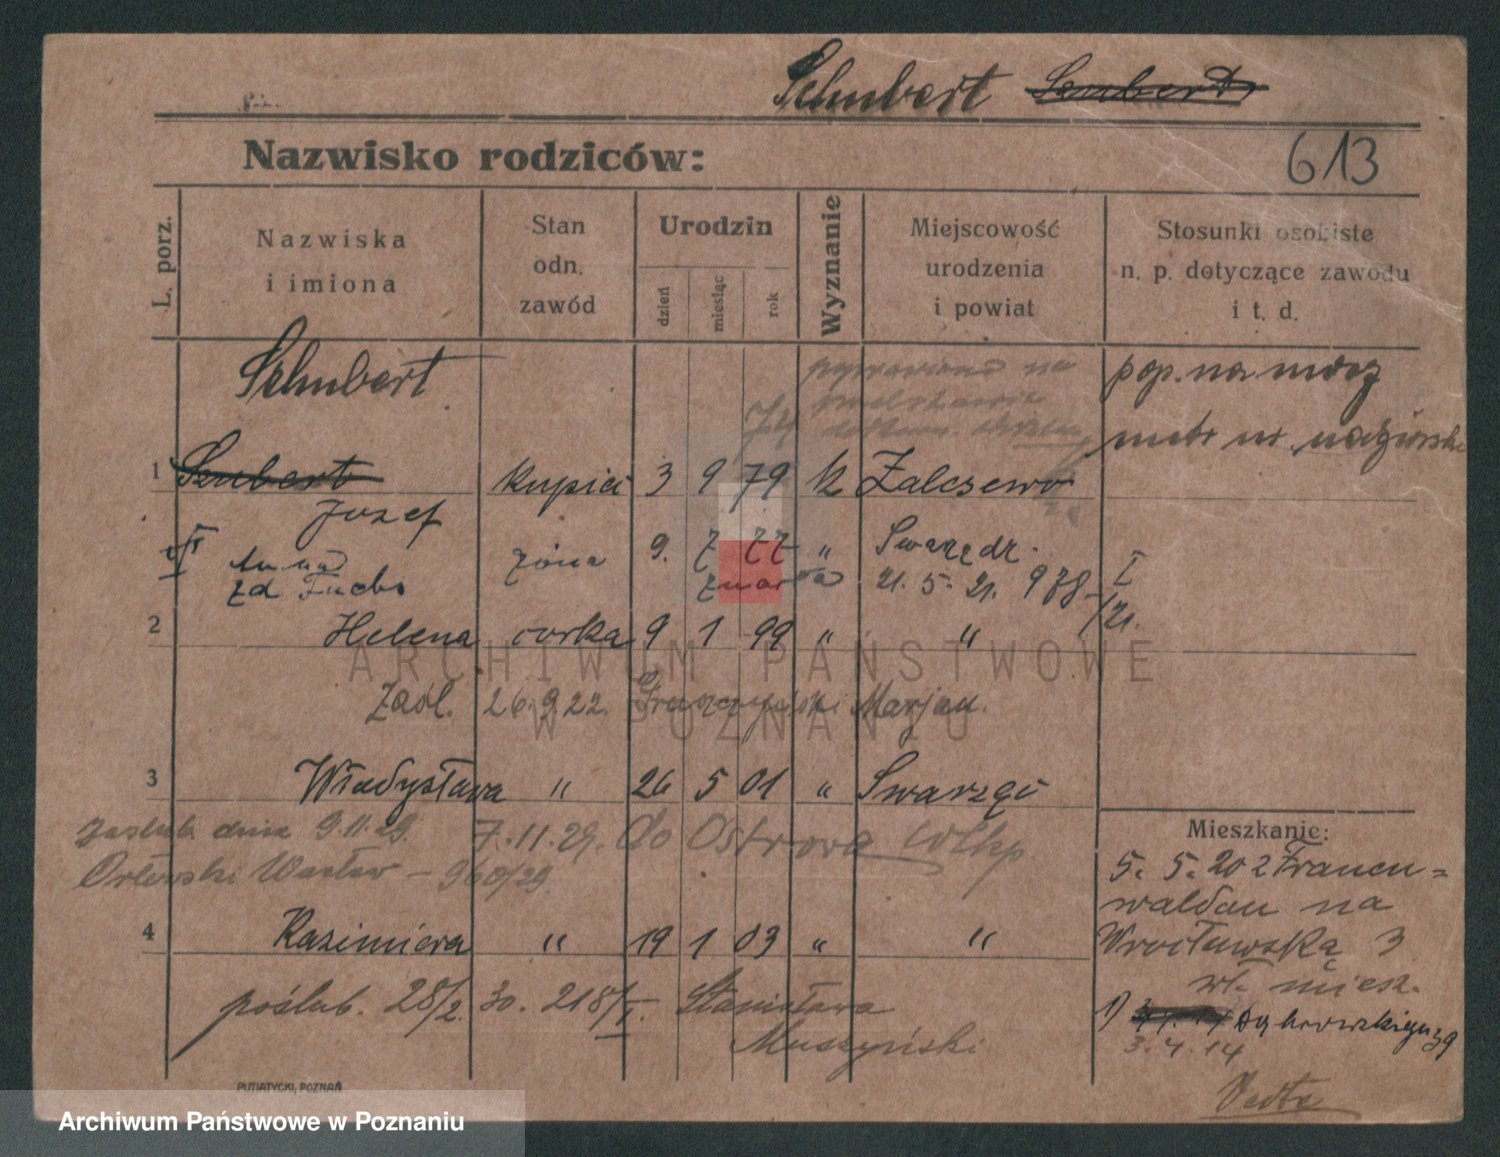 Schubert Szubert
Nazwisko rodziców:
613
L. porz.
Nazwiska
i imiona
Stan
odn.
zawód
Urodzin
dzień
miesiąc
rok
Wyznanie
Miejscowość
urodzenia
i powiat
Stosunki osobiste
n. p. dotyczące zawodu
i t. d.
Schubert
poprawiono na
pop. na mocy
metr. ur.
1 Szubert kupiec 3 9 79 k Zalesewo
Józef
Anna żona 9. 7 77 " Swarzędz.
zd Fuchs zmarła 21. 5. 21. 978
I
/21.
2 Helena córka 9 1 99 " "
Zaśl. 26.9.22. Marjan.
3 Władysława " 26 5 01 " Swarzędz
zaślub. dnia 9.11.29. 7.11.29. do Ostrowa Wlkp.
Orłowski Wacław - 960/29
Mieszkanie:
5. 5. 20 z Francu=
waldau na
Wrocławską 3
wł. miesz.
4 Kazimiera " 19 1 03 " "
poślub. 28/2. 30. 218/I Stanisława
Muszyński
1) Dąbrowskiego 39
3. 4. 14
PUTIATYCKI, POZNAŃ
ARCHIWUM PAŃSTWOWE
W POZNANIU
Archiwum Państwowe w Poznaniu